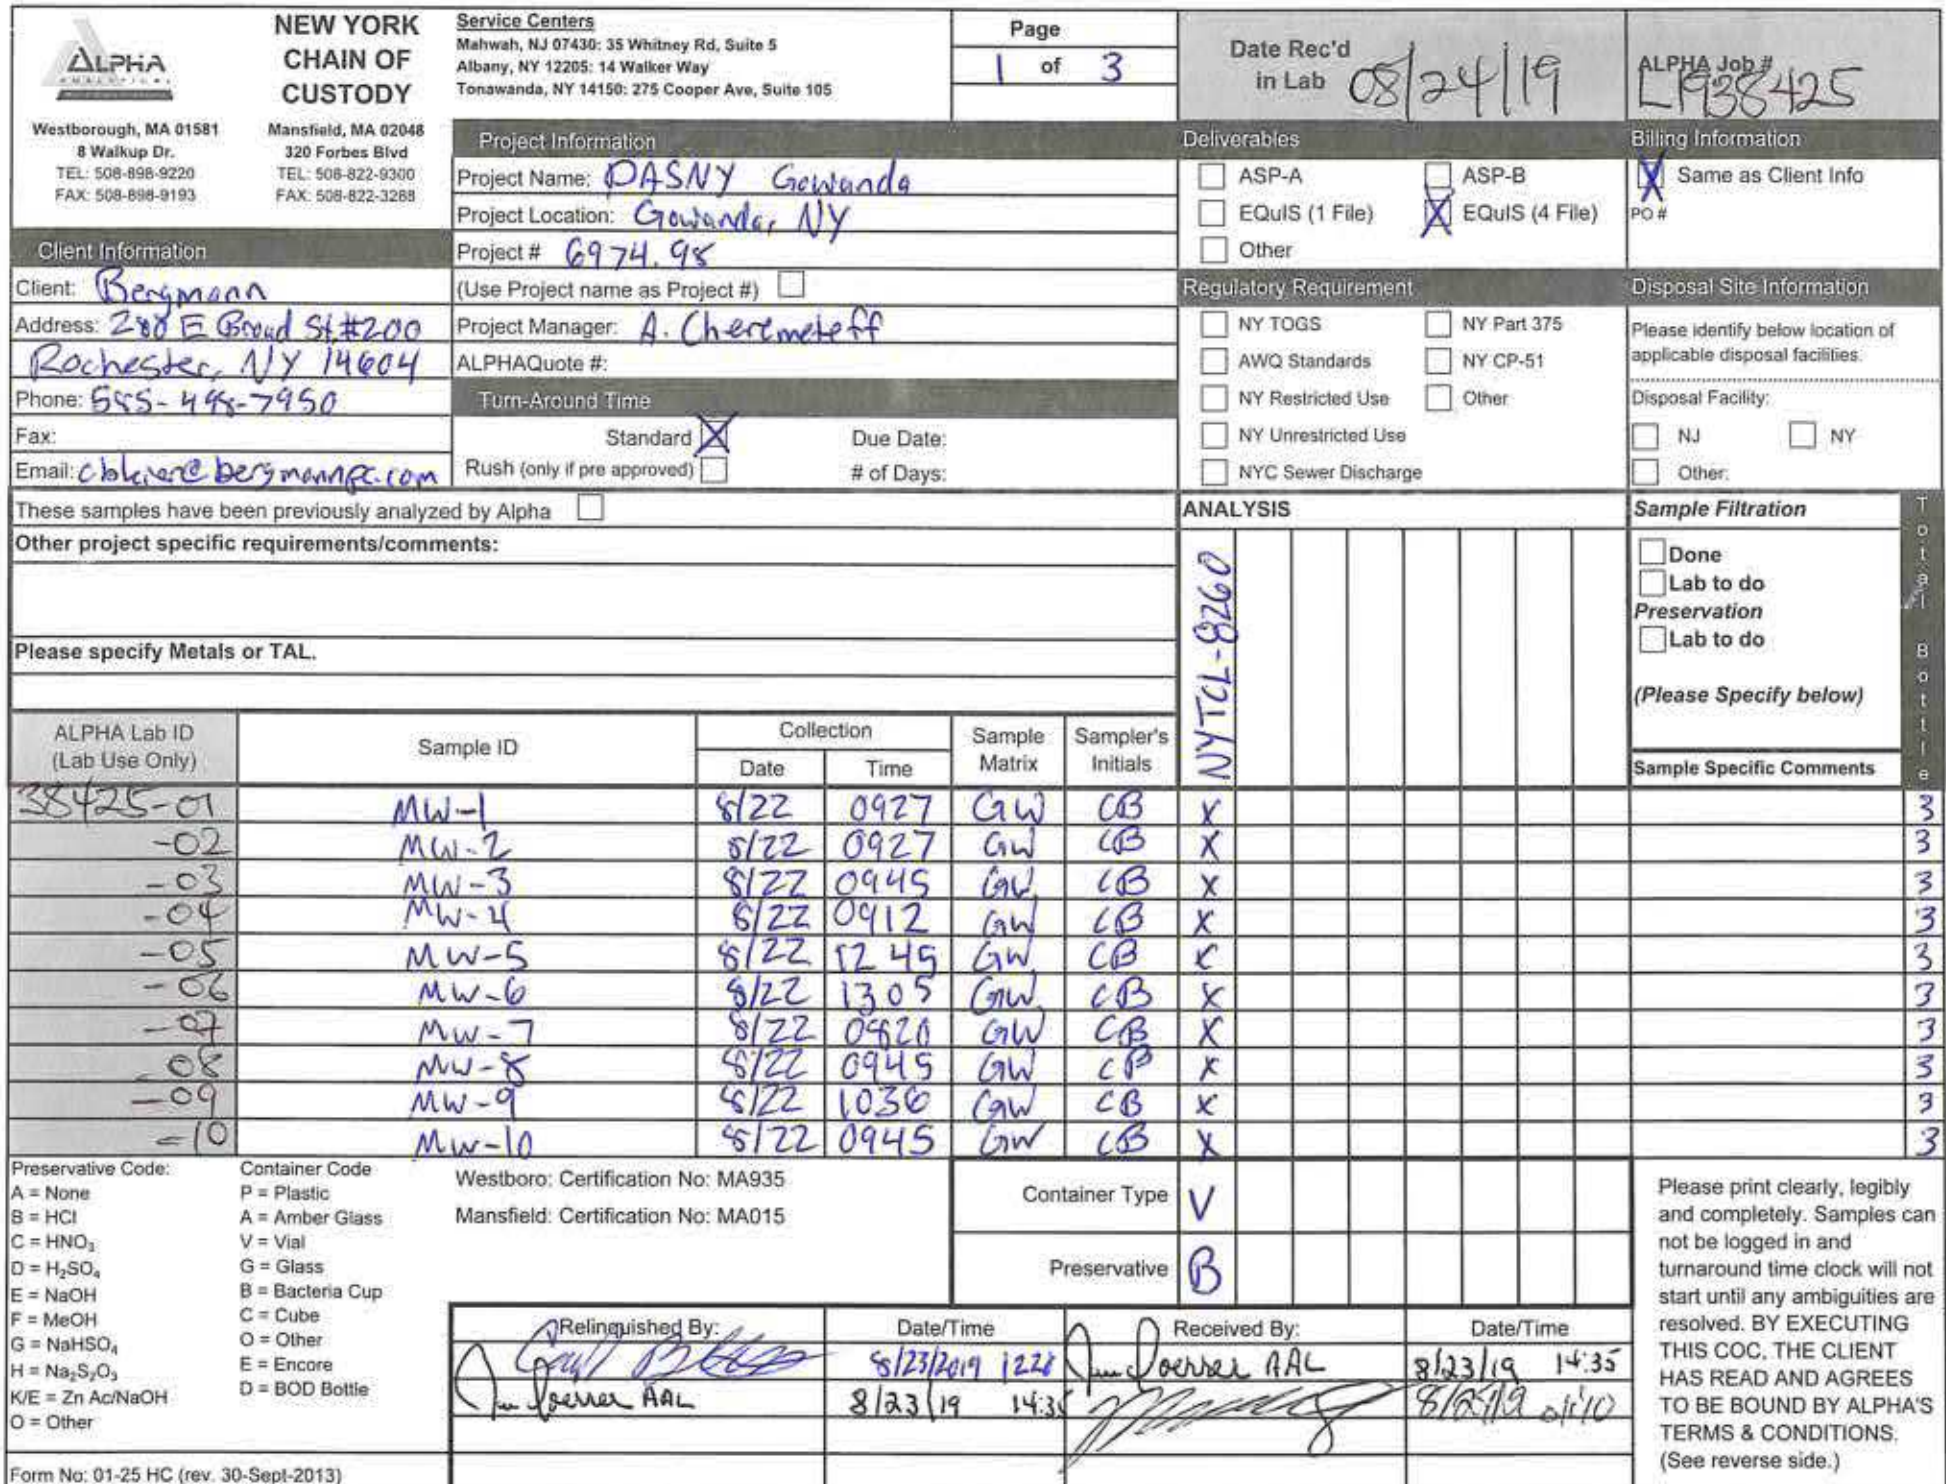 ALPHA
ANALYTICAL
Westborough, MA 01581
8 Walkup Dr.
TEL: 508-898-9220
FAX: 508-898-9193
NEW YORK
CHAIN OF
CUSTODY
Mansfield, MA 02048
320 Forbes Blvd
TEL: 508-822-9300
FAX: 508-822-3288
Service Centers
Mahwah, NJ 07430: 35 Whitney Rd, Suite 5
Albany, NY 12205: 14 Walker Way
Tonawanda, NY 14150: 275 Cooper Ave, Suite 105
Page
1 of 3
Date Rec'd
in Lab 08/24/19
ALPHA Job #
L1938425
Client Information
Client: Bergmann
Address: 280 E Broad St #200
Rochester, NY 14604
Phone: 585-498-7950
Fax:
Email: @bergmannpc.com
Project Information
Project Name: DASNY Gowanda
Project Location: Gowanda, NY
Project # 6974.98
(Use Project name as Project #)
Project Manager: A. Cheremeteff
ALPHAQuote #:
Turn-Around Time
Standard X Due Date:
Rush (only if pre approved) # of Days:
Deliverables
ASP-A ASP-B
EQuIS (1 File) X EQuIS (4 File)
Other
Regulatory Requirement
NY TOGS NY Part 375
AWQ Standards NY CP-51
NY Restricted Use Other
NY Unrestricted Use
NYC Sewer Discharge
Billing Information
X Same as Client Info
PO #
Disposal Site Information
Please identify below location of
applicable disposal facilities.
Disposal Facility:
NJ NY
Other:
These samples have been previously analyzed by Alpha
Other project specific requirements/comments:
Please specify Metals or TAL.
ANALYSIS
NYTCL-8260
Sample Filtration
Done
Lab to do
Preservation
Lab to do
(Please Specify below)
Total Bottle
ALPHA Lab ID
(Lab Use Only)
Sample ID
Collection
Date Time
Sample
Matrix
Sampler's
Initials
Sample Specific Comments
38425-01 MW-1 8/22 0927 GW CB X 3
-02 MW-2 8/22 0927 GW CB X 3
-03 MW-3 8/22 0945 GW CB X 3
-04 MW-4 8/22 0912 GW CB X 3
-05 MW-5 8/22 1245 GW CB X 3
-06 MW-6 8/22 1305 GW CB X 3
-07 MW-7 8/22 0820 GW CB X 3
-08 MW-8 8/22 0945 GW CB X 3
-09 MW-9 8/22 1036 GW CB X 3
-10 MW-10 8/22 0945 GW CB X 3
Preservative Code:
A = None
B = HCl
C = HNO3
D = H2SO4
E = NaOH
F = MeOH
G = NaHSO4
H = Na2S2O3
K/E = Zn Ac/NaOH
O = Other
Container Code
P = Plastic
A = Amber Glass
V = Vial
G = Glass
B = Bacteria Cup
C = Cube
O = Other
E = Encore
D = BOD Bottle
Westboro: Certification No: MA935
Mansfield: Certification No: MA015
Container Type V
Preservative B
Relinquished By: Date/Time Received By: Date/Time
8/23/2019 1228 AAL 8/23/19 14:35
AAL 8/23/19 14:35
Please print clearly, legibly
and completely. Samples can
not be logged in and
turnaround time clock will not
start until any ambiguities are
resolved. BY EXECUTING
THIS COC, THE CLIENT
HAS READ AND AGREES
TO BE BOUND BY ALPHA'S
TERMS & CONDITIONS.
(See reverse side.)
Form No: 01-25 HC (rev. 30-Sept-2013)